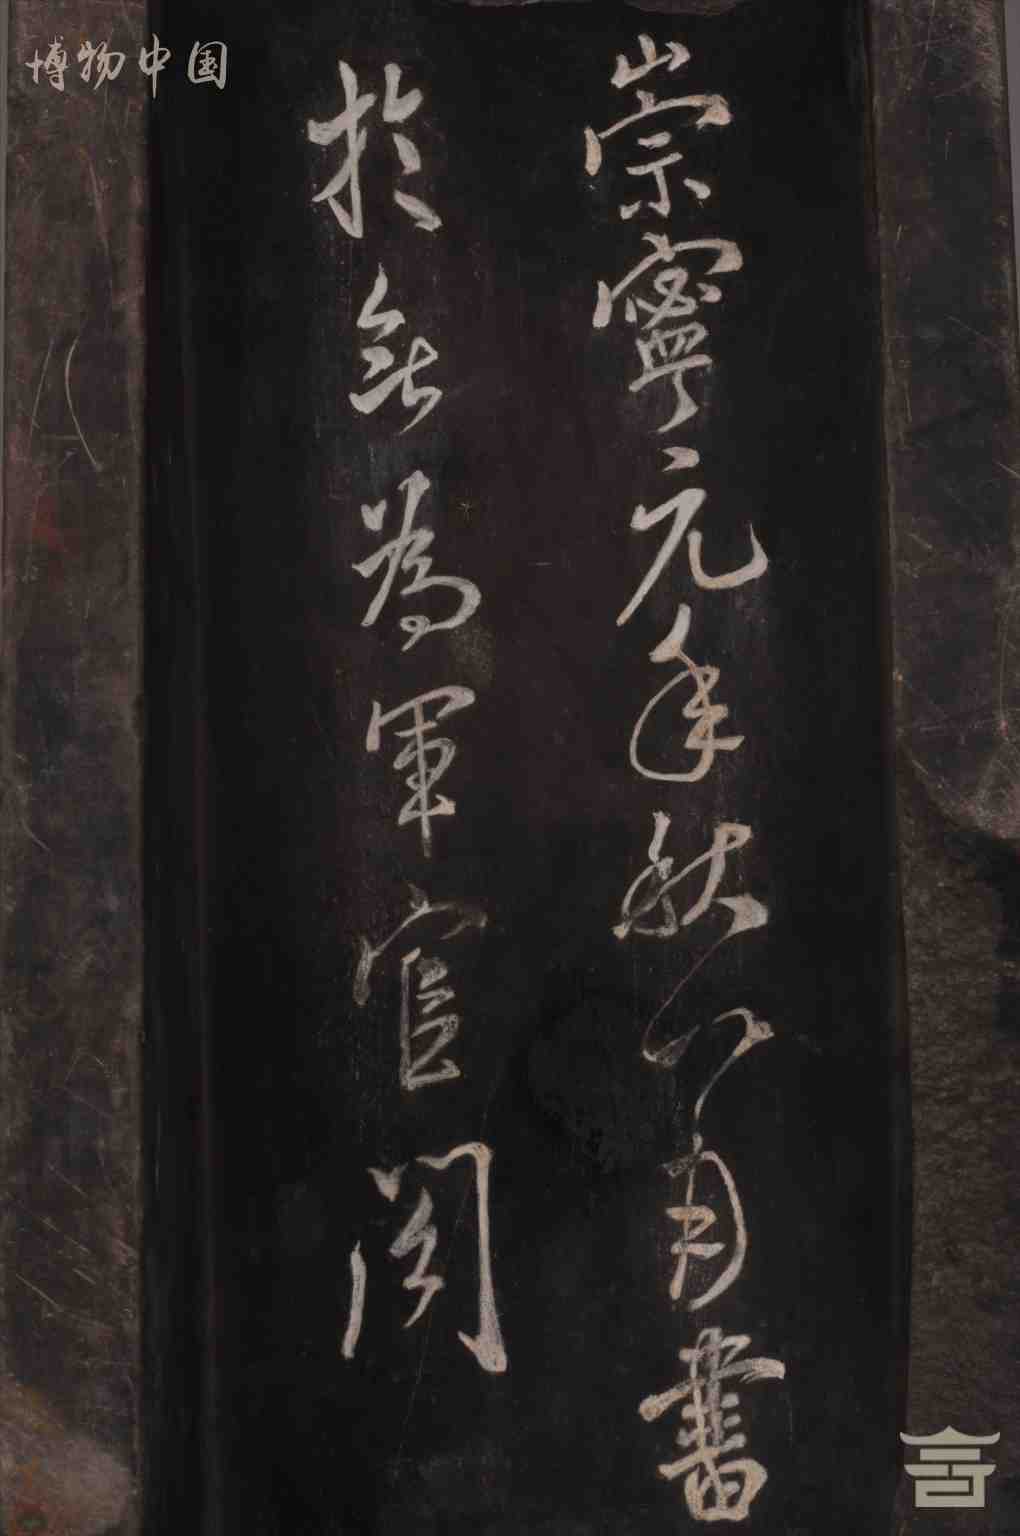 崇寧元年秋八月書
於無為軍官閣
博物中国